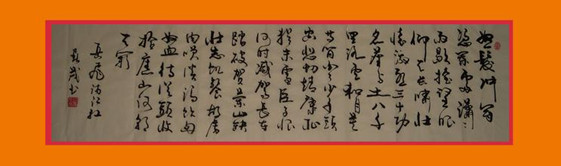 怒髮冲冠
憑闌處瀟瀟
雨歇抬望眼
仰天長嘯壯
懷激烈三十功
名塵與土八千
里路雲和月莫
等閒白了少年頭
空悲切靖康恥
猶未雪臣子恨
何時滅駕長車
踏破賀蘭山缺
壯志飢餐胡虜
肉笑談渴飲匈
奴血待從頭收
拾舊山河朝
天闕
岳飛滿江紅
書